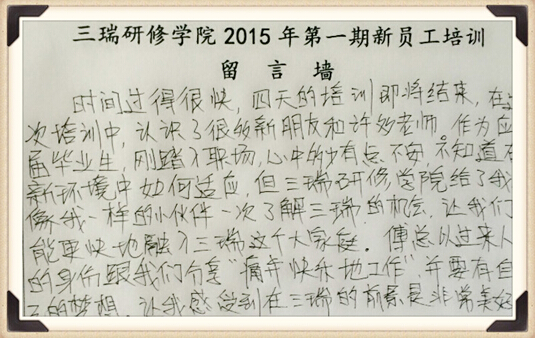 三瑞研修学院2015年第一期新员工培训
留言墙
时间过得很快，四天的培训即将结束，在
次培训中，认识了很多新朋友和许多老师。作为应
届毕业生，刚踏入职场，心中的有点不安，不知道在
新环境中如何适应，但三瑞研修学院给了我
像我一样的小伙伴一次了解三瑞的机会，让我们
能更快地融入三瑞这个大家庭。傅总以过来人
的身份跟我们分享“痛并快乐地工作”并要有自
己的梦想，让我感受到在三瑞的前景是非常美好